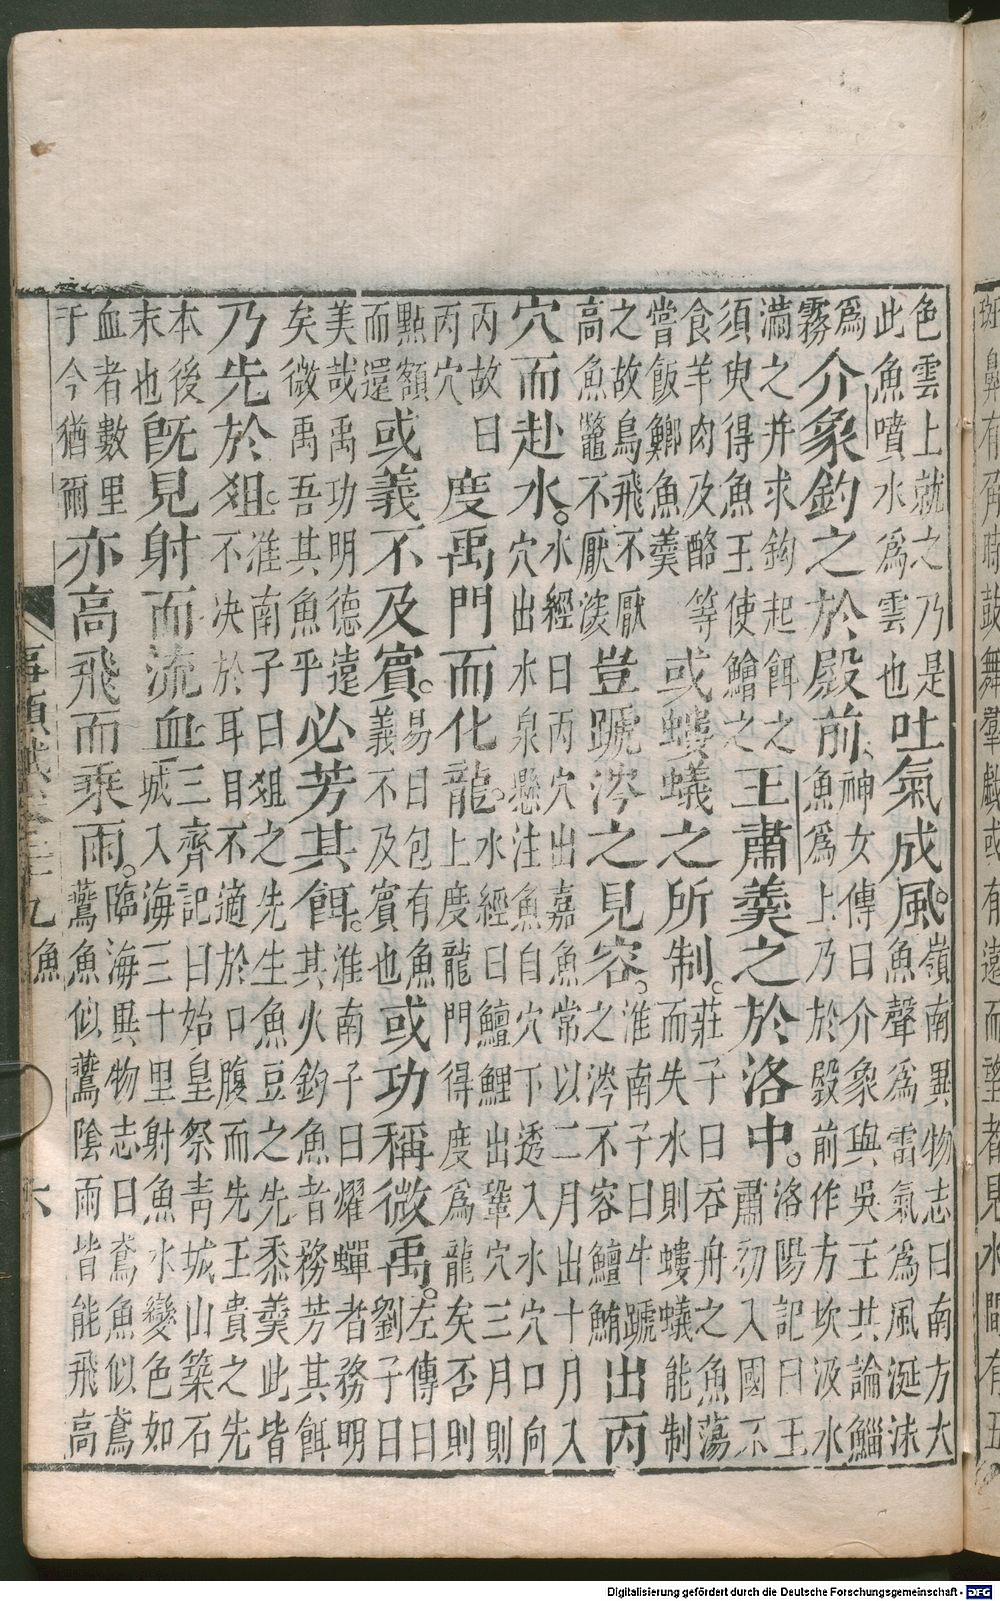 斑鼻有角時鼓舞羣戲或有遠而望者見水間有五
色雲上就之乃是
此魚噴水爲雲也
吐氣成風。
嶺南異物志曰南方大
魚聲爲雷氣爲風涎沫
爲
霧
介象釣之於殿前、
神女傳曰介象與吳王共論鯔
魚爲上乃於殿前作方坎汲水
滿之并求鈎起餌之
須臾得魚王使鱠之
王肅羹之於洛中。
洛陽記曰王
肅初入國不
食羊肉及酪等
嘗飯鯽魚羹
或螻蟻之所制。
莊子曰吞舟之魚蕩
而失水則螻蟻能制
之故鳥飛不厭
高魚鼈不厭深
豈蹏涔之見容。
淮南子曰牛蹏
之涔不容鱣鮪
出丙
穴而赴水。
水經曰丙穴出嘉魚常以二月出十月入
穴出水泉懸注魚自穴下透入水穴口向
丙故曰
丙穴
度禹門而化龍。
水經曰鱣鯉出鞏穴三月則
上度龍門得度爲龍矣否則
點額
而還
或義不及賓。
易曰包有魚
義不及賓也
或功稱微禹。
左傳曰
劉子曰
美哉禹功明德遠
矣微禹吾其魚乎
必芳其餌。
淮南子曰耀蟬者務明
其火釣魚者務芳其餌
乃先於俎。
淮南子曰俎之先生魚豆之先黍羹此皆
不決於耳目不適於口腹而先王貴之先
本後
末也
既見射而流血、
三齊記曰始皇祭青城山築石
城入海三十里射魚水變色如
血者數里
于今猶爾
亦高飛而乘雨。
臨海異物志曰鳶魚似鳶
鷰魚似鷰陰雨皆能飛高
事類賦卷二十九 魚 六
Digitalisierung gefördert durch die Deutsche Forschungsgemeinschaft - DFG